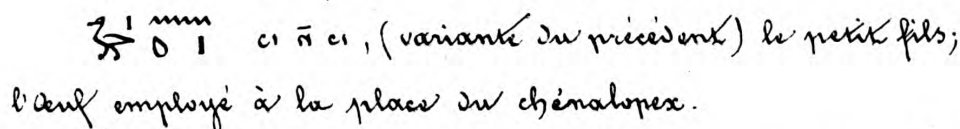 ⲥⲓ ⲛ̄ ⲥⲓ, (variante du précédent) le petit fils;
l'œuf employé à la place du chénalopex.